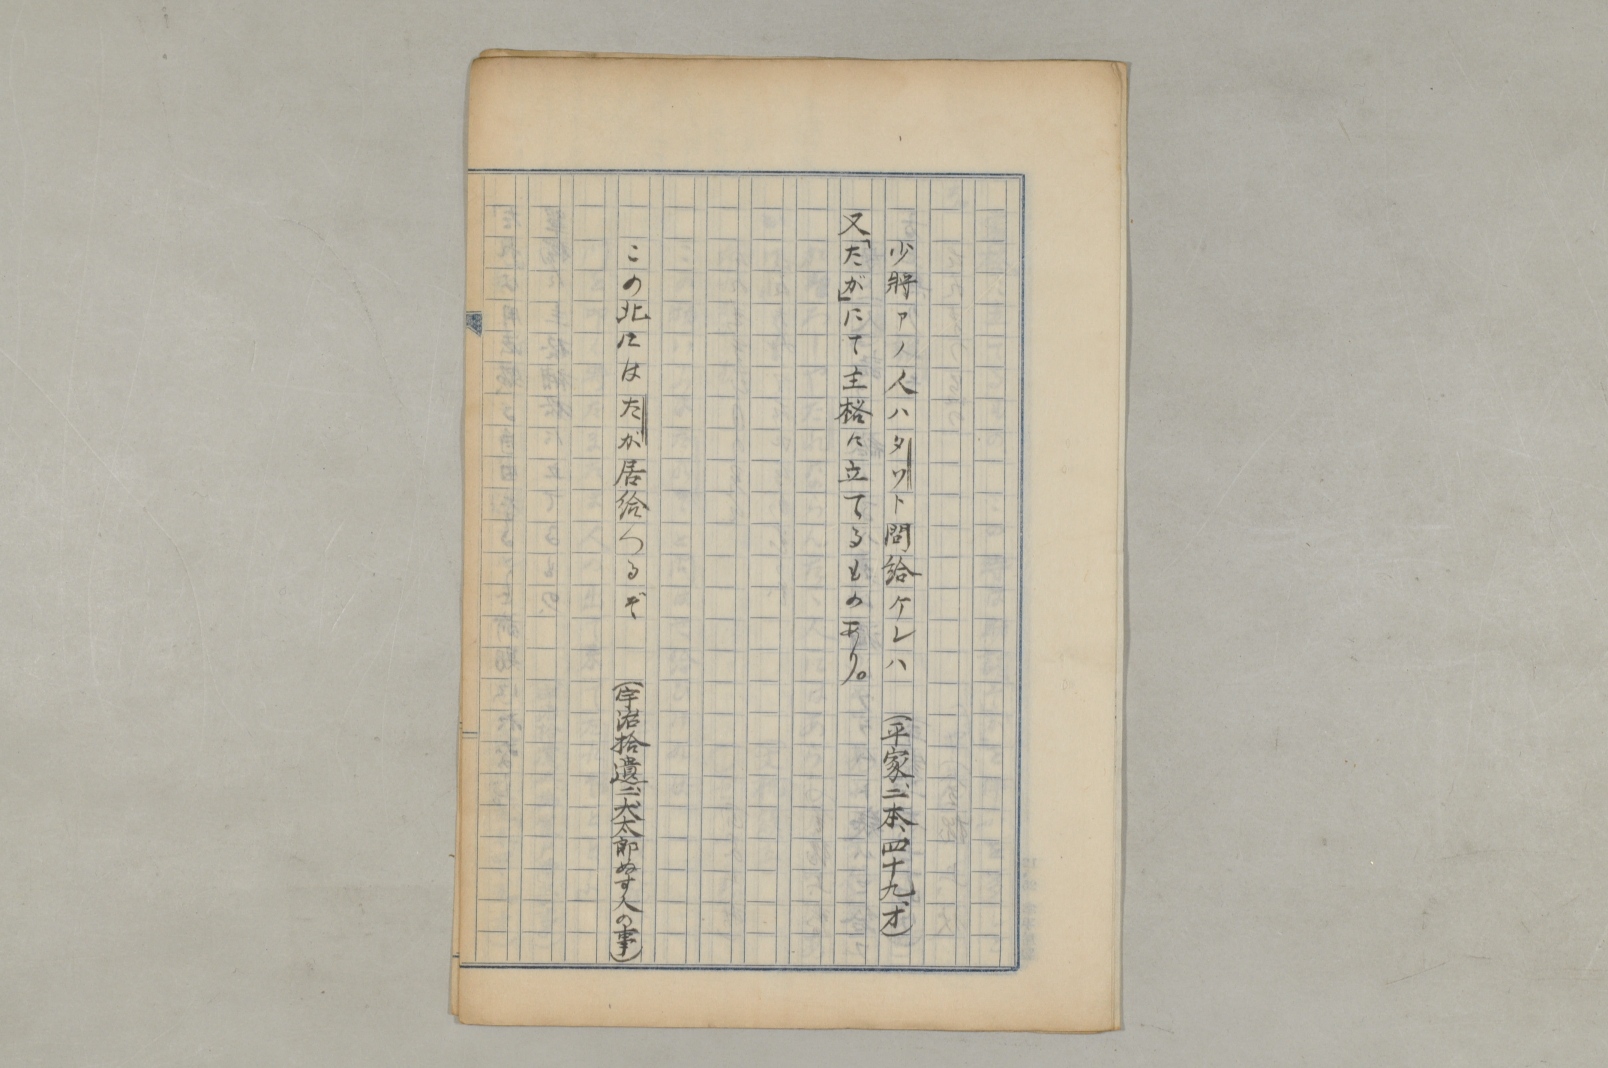 少將アノ人ハタソト問給ケレハ　（平家二本、四十九、オ）
又「たが」にて主格に立てるものあり。
この北にはたが居給つるぞ　（宇治拾遺二、大太郎ぬす人の事）